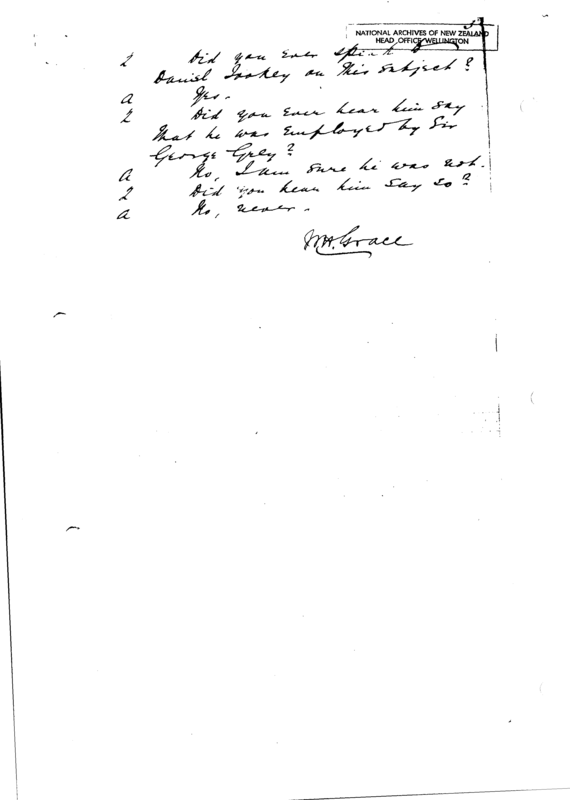 52
NATIONAL ARCHIVES OF NEW ZEALAND
HEAD OFFICE WELLINGTON
Q Did you ever speak to
Daniel on this subject?
A Yes.
Q Did you ever hear him say
that he was employed by Sir
George Grey?
A No, I am sure he was not.
Q Did you hear him say so?
A No, never.
W.H. Grace